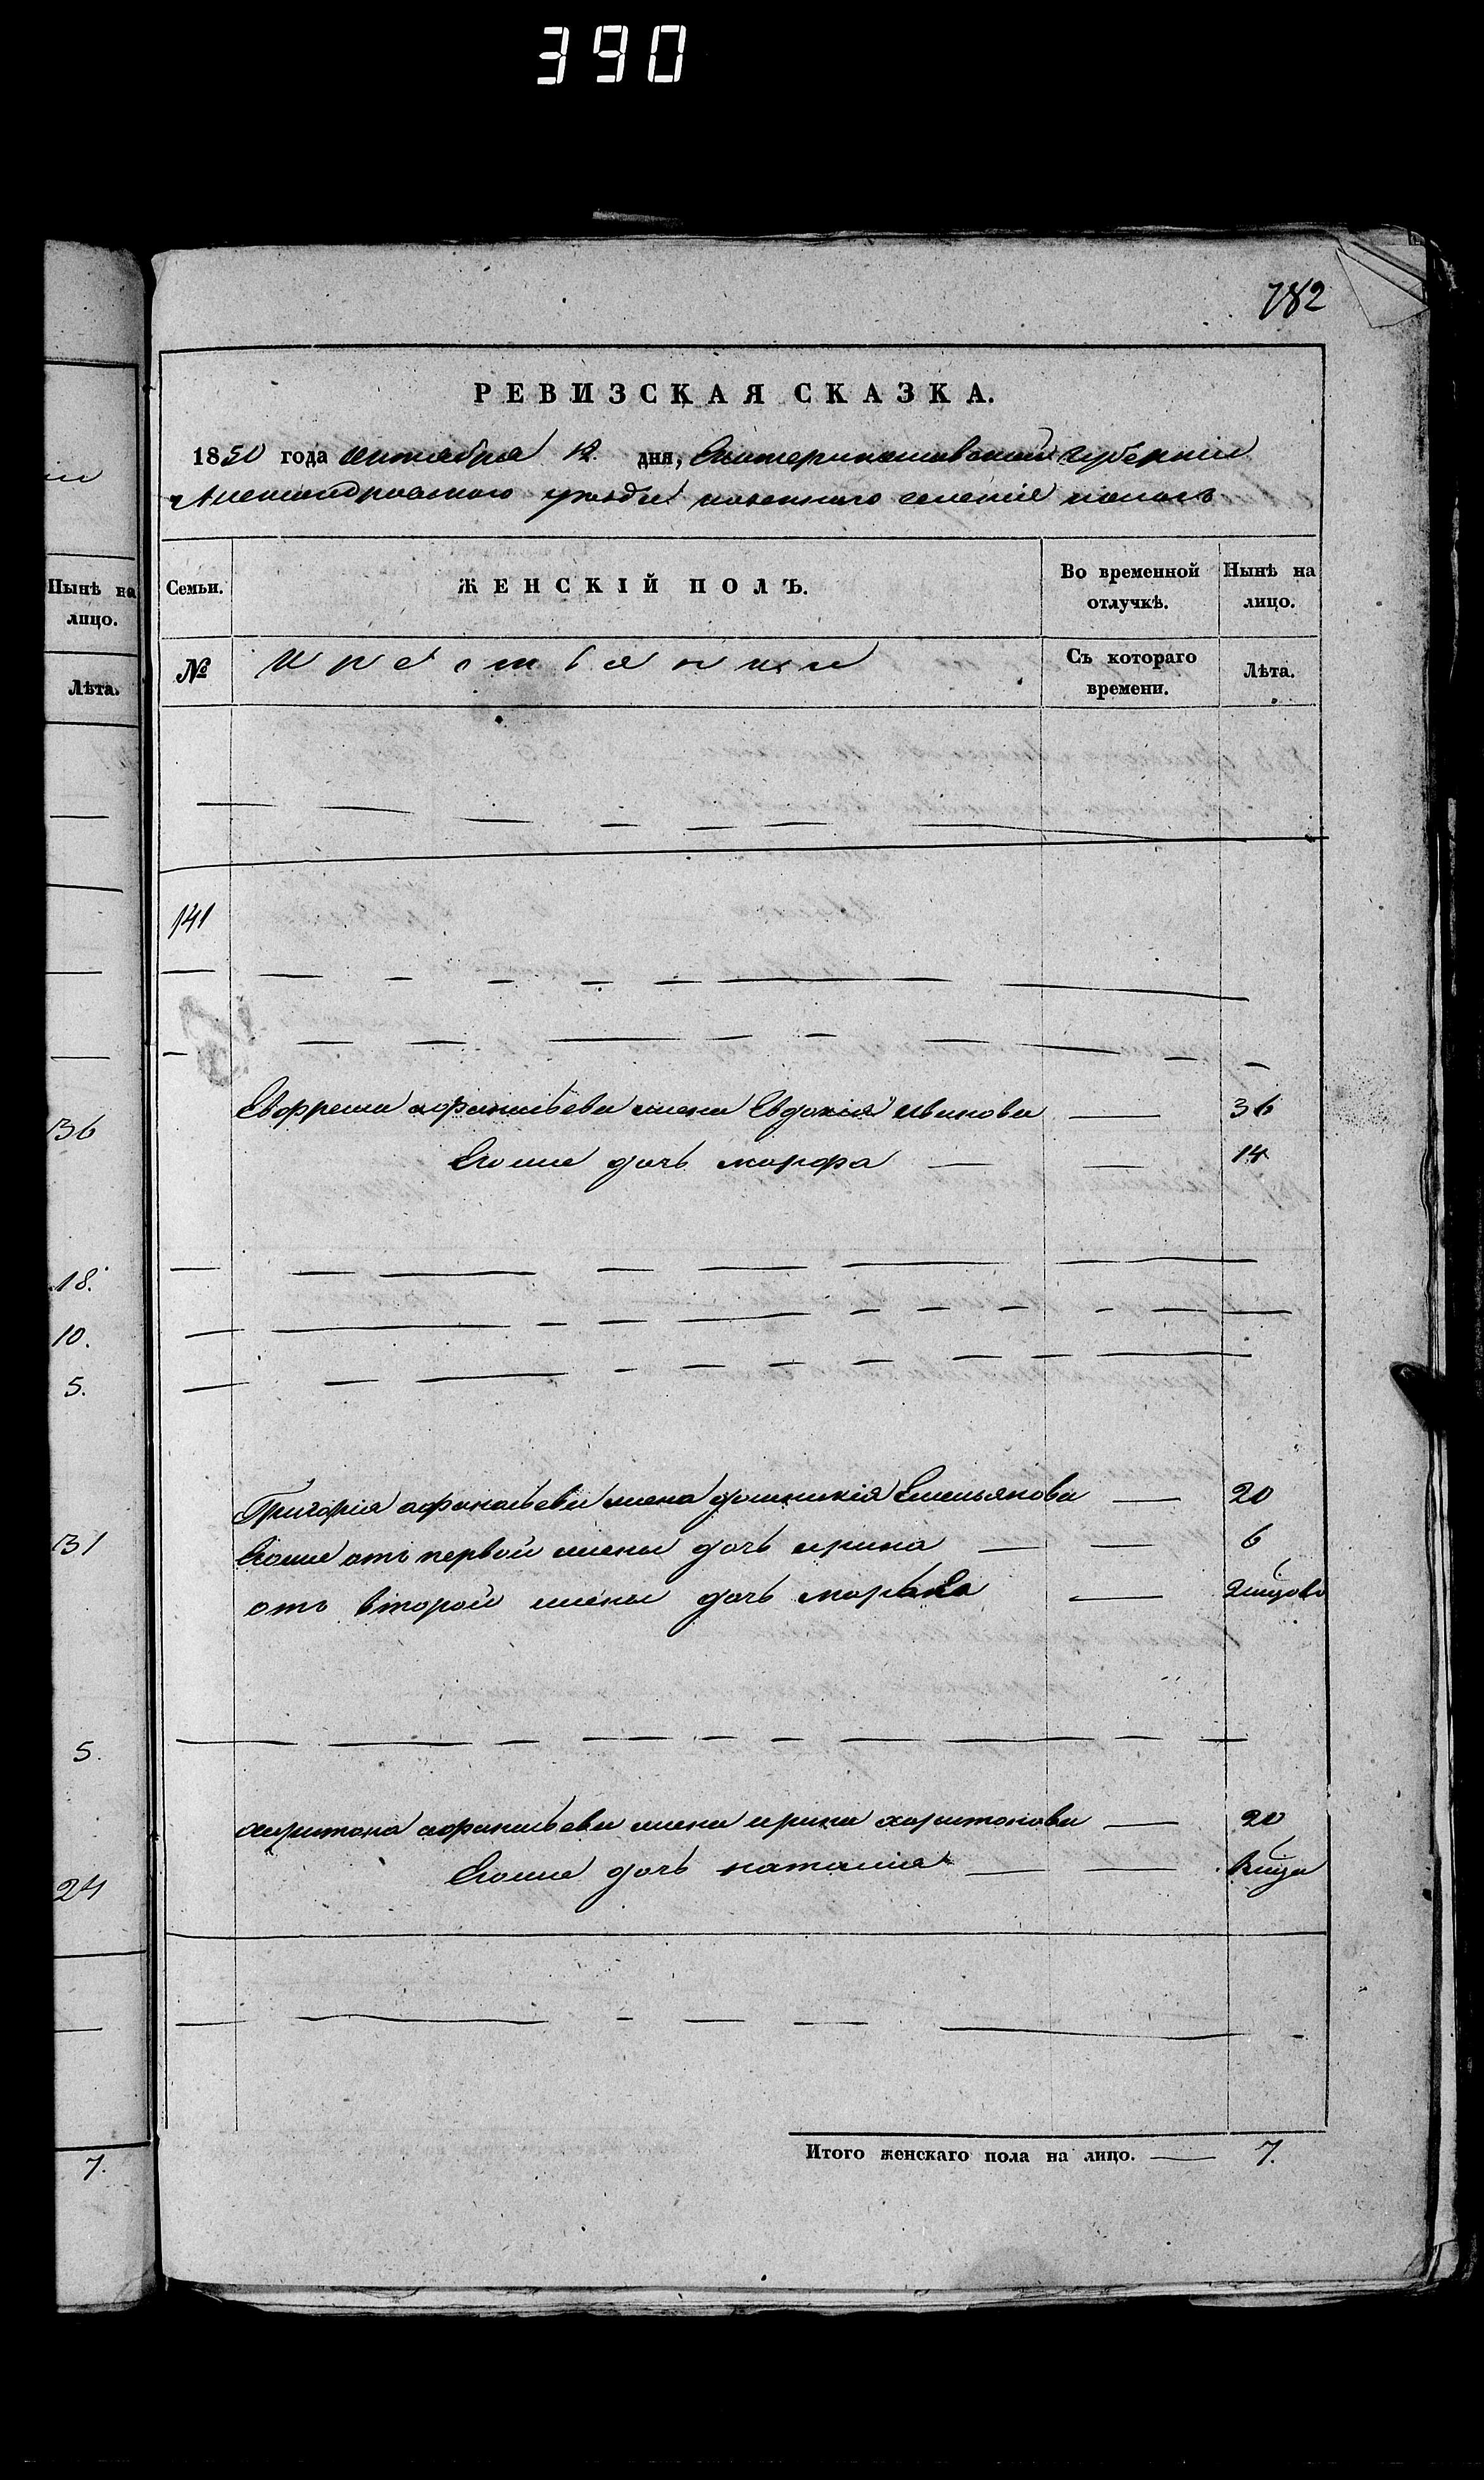 390
782
РЕВИЗСКАЯ СКАЗКА.
1850 года октября 12 дня, Екатеринославской губернии
Александровского уезда казенного селения конскъ
Нынѣ на лицо.
Семьи.
ЖЕНСКІЙ ПОЛЪ.
Во временной отлучкѣ.
Нынѣ на лицо.
Лѣта.
№
Крестьянки
Съ котораго времени.
Лѣта.
141
36
Евфрема афанасьева жена Евдокия иванова — 36
Егоже дочь марфа — — 14
18.
10.
5.
Григория афанасьева жена Емельянова — 20
31
Егоже отъ первой жены дочь ирина — — 6
отъ второй жены дочь —
5.
харитона афанасьева жена ирина харитонова — 20
24
Егоже дочь наталия — —
7.
Итого женскаго пола на лицо. — 7.